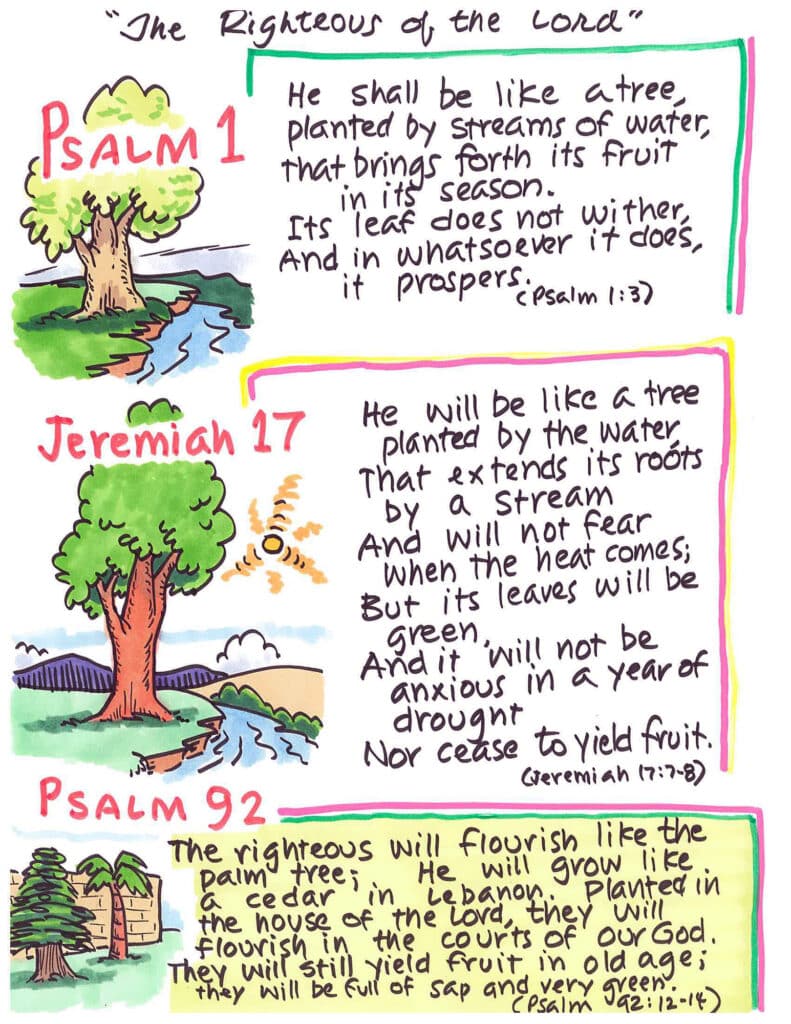 "The Righteous of the Lord"
PSALM 1
He shall be like a tree,
planted by streams of water,
that brings forth its fruit
in its season.
Its leaf does not wither,
And in whatsoever it does,
it prospers.
(Psalm 1:3)
Jeremiah 17
He will be like a tree
planted by the water,
That extends its roots
by a stream
And will not fear
when the heat comes;
But its leaves will be
green,
And it will not be
anxious in a year of
drought
Nor cease to yield fruit.
(Jeremiah 17:7-8)
PSALM 92
The righteous will flourish like the
palm tree; He will grow like
a cedar in Lebanon. Planted in
the house of the Lord, they will
flourish in the courts of our God.
They will still yield fruit in old age;
they will be full of sap and very green.
(Psalm 92:12-14)